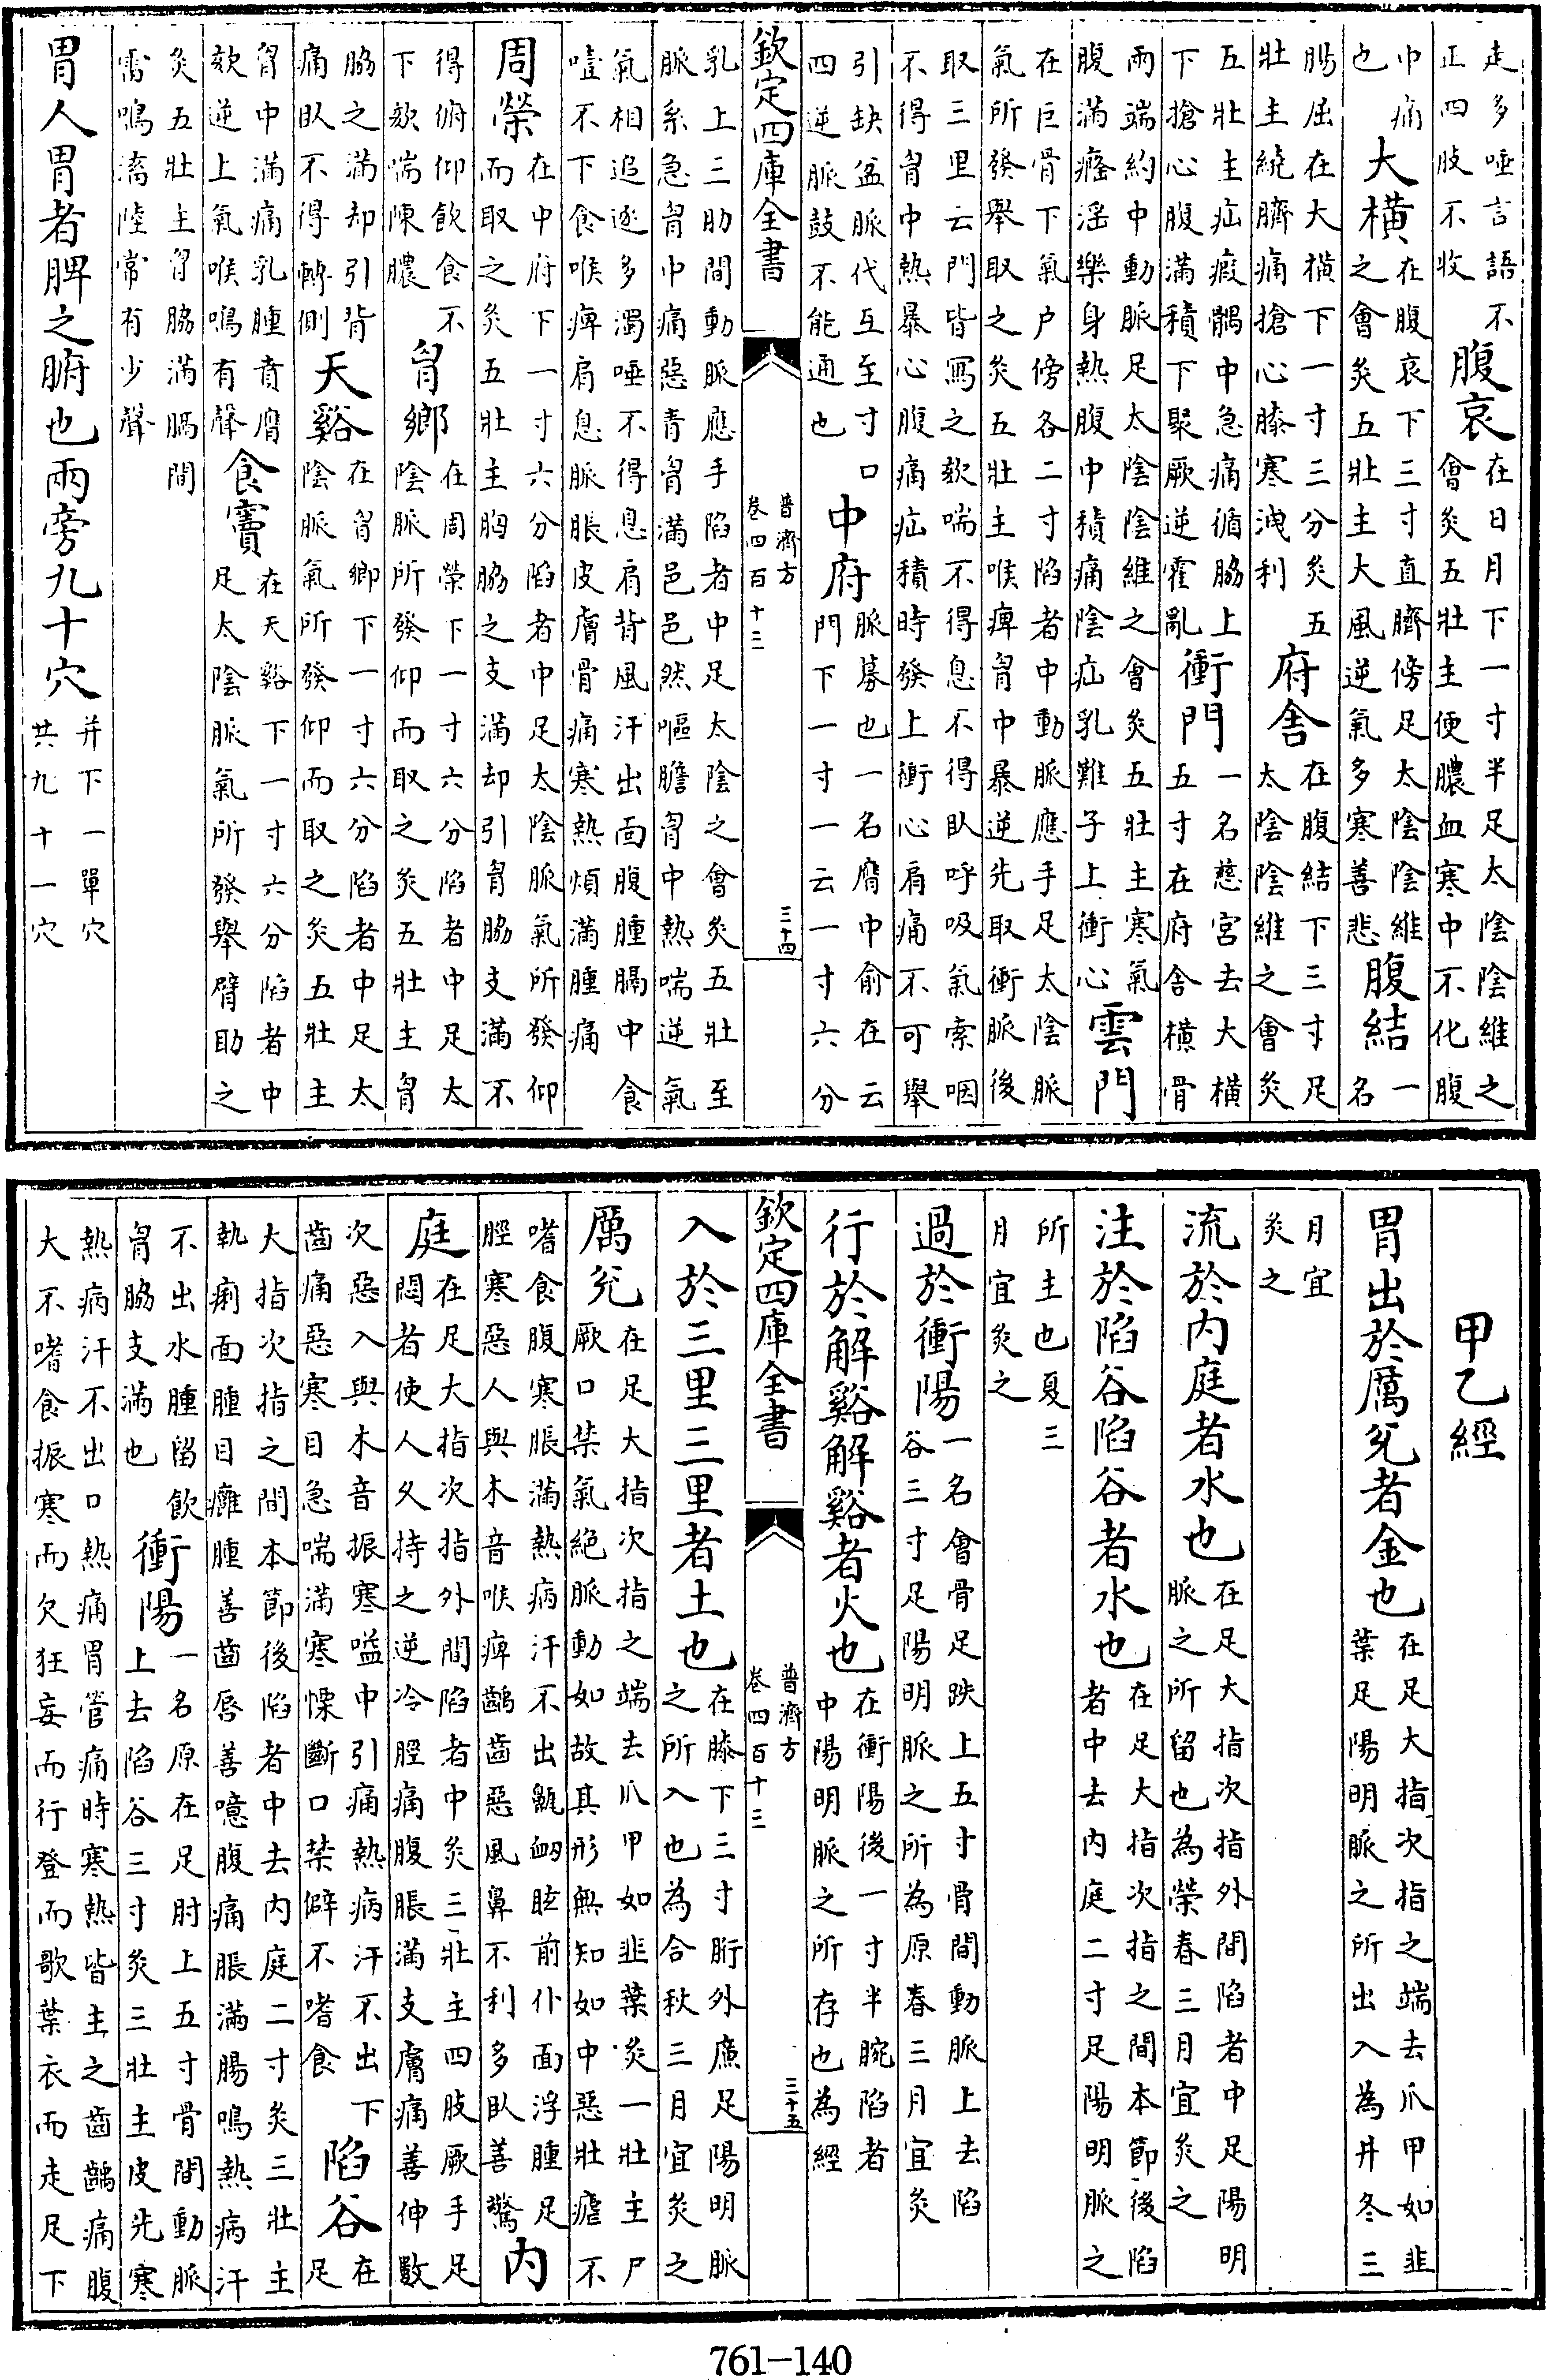 走多唾言語不正四肢不收腹哀在日月下一寸半足太陰陰維之會灸五壯主便膿血寒中不化腹
巾痛也大橫在腹哀下三寸直臍傍足太陰陰維之會灸五壯主大風逆氣多寒善悲腹結一名
腸屈在大橫下一寸三分灸五壯主繞臍痛搶心膝寒洩利府舍在腹結下三寸足太陰陰維之會灸
五壯主疝瘕髃中急痛循脇上下搶心腹滿積下聚厥逆霍亂衝門一名慈宮去大橫五寸在府舍橫骨
兩端約中動脈足太陰陰維之會灸五壯主寒氣腹滿癃淫樂身熱腹中積痛陰疝乳難子上衝心雲門
在巨骨下氣户傍各二寸陷者中動脈應手足太陰脈氣所發舉取之灸五壯主喉痺胷巾暴逆先取衝脈後
取三里云門皆寫之欬喘不得息不得臥呼吸氣索咽不得胷中熱暴心腹痛疝積時發上衝心肩痛不可舉
引缺盆脈代互至寸口四逆脈鼓不能通也中府脈募也一名膺中俞在云門下一寸一云一寸六分
欽定四庫全書 普濟方卷四百十三 三十四
乳上三肋間動脈應手陷者中足太陰之會灸五壯至脈系急胷巾痛惡青胷滿邑邑然嘔膽胷中熱喘逆氣
氣相追逐多濁唾不得息肩背風汗出面腹腫膈中食噎不下食喉痺肩息脈脹皮膚骨痛寒熱煩滿腫痛
周榮在中府下一寸六分陷者中足太陰脈氣所發仰而取之灸五壯主胸脇之支滿却引胷脇支滿不
得俯仰飲食不下欬喘陳膿胷鄉在周榮下一寸六分陷者中足太陰脈所發仰而取之灸五壯主胷
脇之滿却引背痛臥不得轉側天谿在胷鄉下一寸六分陷者中足太陰脈氣所發仰而取之灸五壯主
胷中滿痛乳腫賁膺欬逆上氣喉鳴有聲食竇在天谿下一寸六分陷者中足太陰脈氣所發舉臂助之
灸五壯主胷脇滿膈間雷鳴滀陸常有少聲
胃人胃者脾之腑也兩旁九十穴并下一單穴共九十一穴
甲乙經
胃出於厲兊者金也在足大指次指之端去爪甲如韭葉足陽明脈之所出入為井冬三
月宜灸之
流於内庭者水也在足大指次指外間陷者中足陽明脈之所留也為滎春三月宜灸之
注於陷谷陷谷者水也在足大指次指之間本節後陷者中去内庭二寸足陽明脈之
所主也夏三月宜灸之
過於衝陽一名會骨足趺上五寸骨間動脈上去陷谷三寸足陽明脈之所為原春三月宜灸
行於解谿解谿者火也在衝陽後一寸半腕陷者中陽明脈之所存也為經
欽定四庫全書 普濟方卷四百十三 三十五
入於三里三里者土也在膝下三寸胻外廉足陽明脈之所入也為合秋三月宜灸之
厲兊在足大指次指之端去爪甲如韭葉灸一壯主尸厥口禁氣絶脈動如故其形無知如中惡壯瘧不
嗜食腹寒脹滿熱病汗不出鼽衂眩前仆面浮腫足脛寒惡人與木音喉痺齲齒惡風鼻不利多臥善驚内
庭在足大指次指外間陷者中灸三壯主四肢厥手足悶者使人久持之逆冷脛痛腹脹滿支膚痛善伸數
次惡入與木音振寒嗌中引痛熱病汗不出下齒痛惡寒目急喘滿寒慄斷口禁僻不嗜食陷谷在足
大指次指之間本節後陷者中去内庭二寸灸三壯主執痢面腫目癰腫善齒唇善噫腹痛脹滿腸鳴熱病汗
不出水腫留飲胷脇支滿也衝陽一名原在足肘上五寸骨間動脈上去陷谷三寸灸三壯主皮先寒
熱病汗不出口熱痛胃管痛時寒熱皆主之齒齲痛腹大不嗜食振寒而欠狂妄而行登而歌葉衣而走足下
761-140